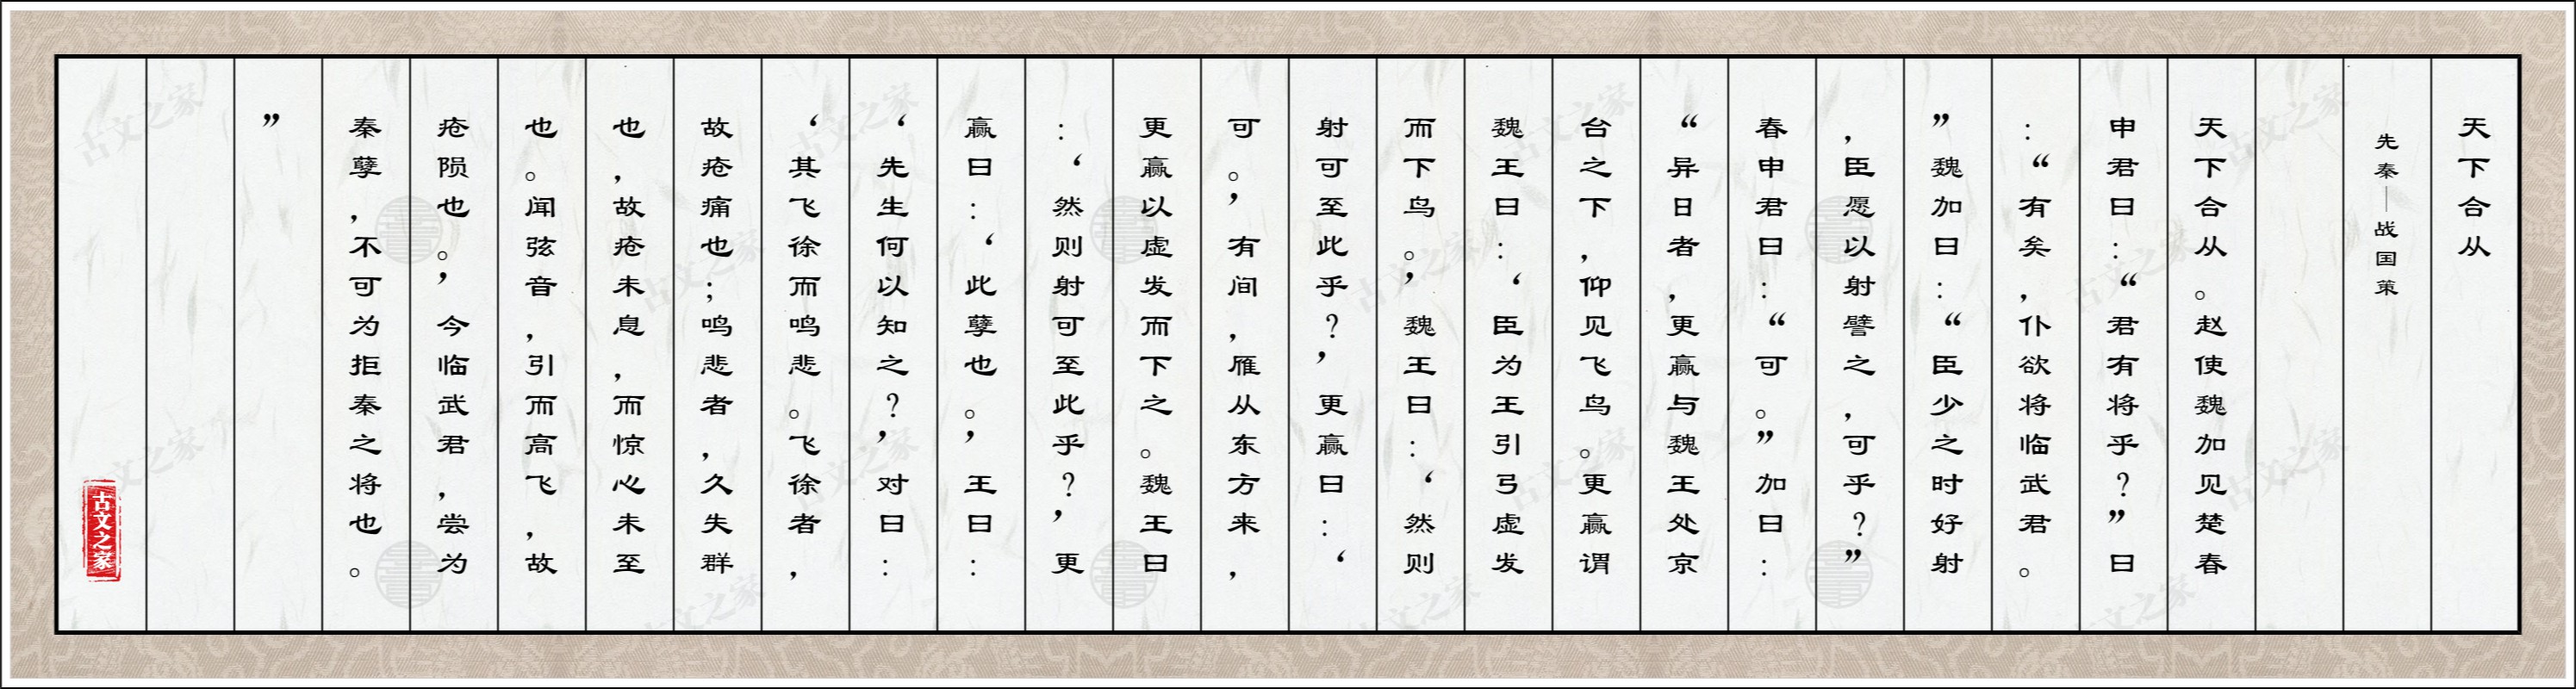 天下合从
先秦—战国策
天下合从。赵使魏加见楚春
申君曰：“君有将乎？”曰
：“有矣，仆欲将临武君。
”魏加曰：“臣少之时好射
，臣愿以射譬之，可乎？”
春申君曰：“可。”加曰：
“异日者，更羸与魏王处京
台之下，仰见飞鸟。更羸谓
魏王曰：‘臣为王引弓虚发
而下鸟。’魏王曰：‘然则
射可至此乎？’更羸曰：‘
可。’有间，雁从东方来，
更羸以虚发而下之。魏王曰
：‘然则射可至此乎？’更
羸曰：‘此孽也。’王曰：
‘先生何以知之？’对曰：
‘其飞徐而鸣悲。飞徐者，
故疮痛也；鸣悲者，久失群
也，故疮未息，而惊心未至
也。闻弦音，引而高飞，故
疮陨也。’今临武君，尝为
秦孽，不可为拒秦之将也。
”
古文之家